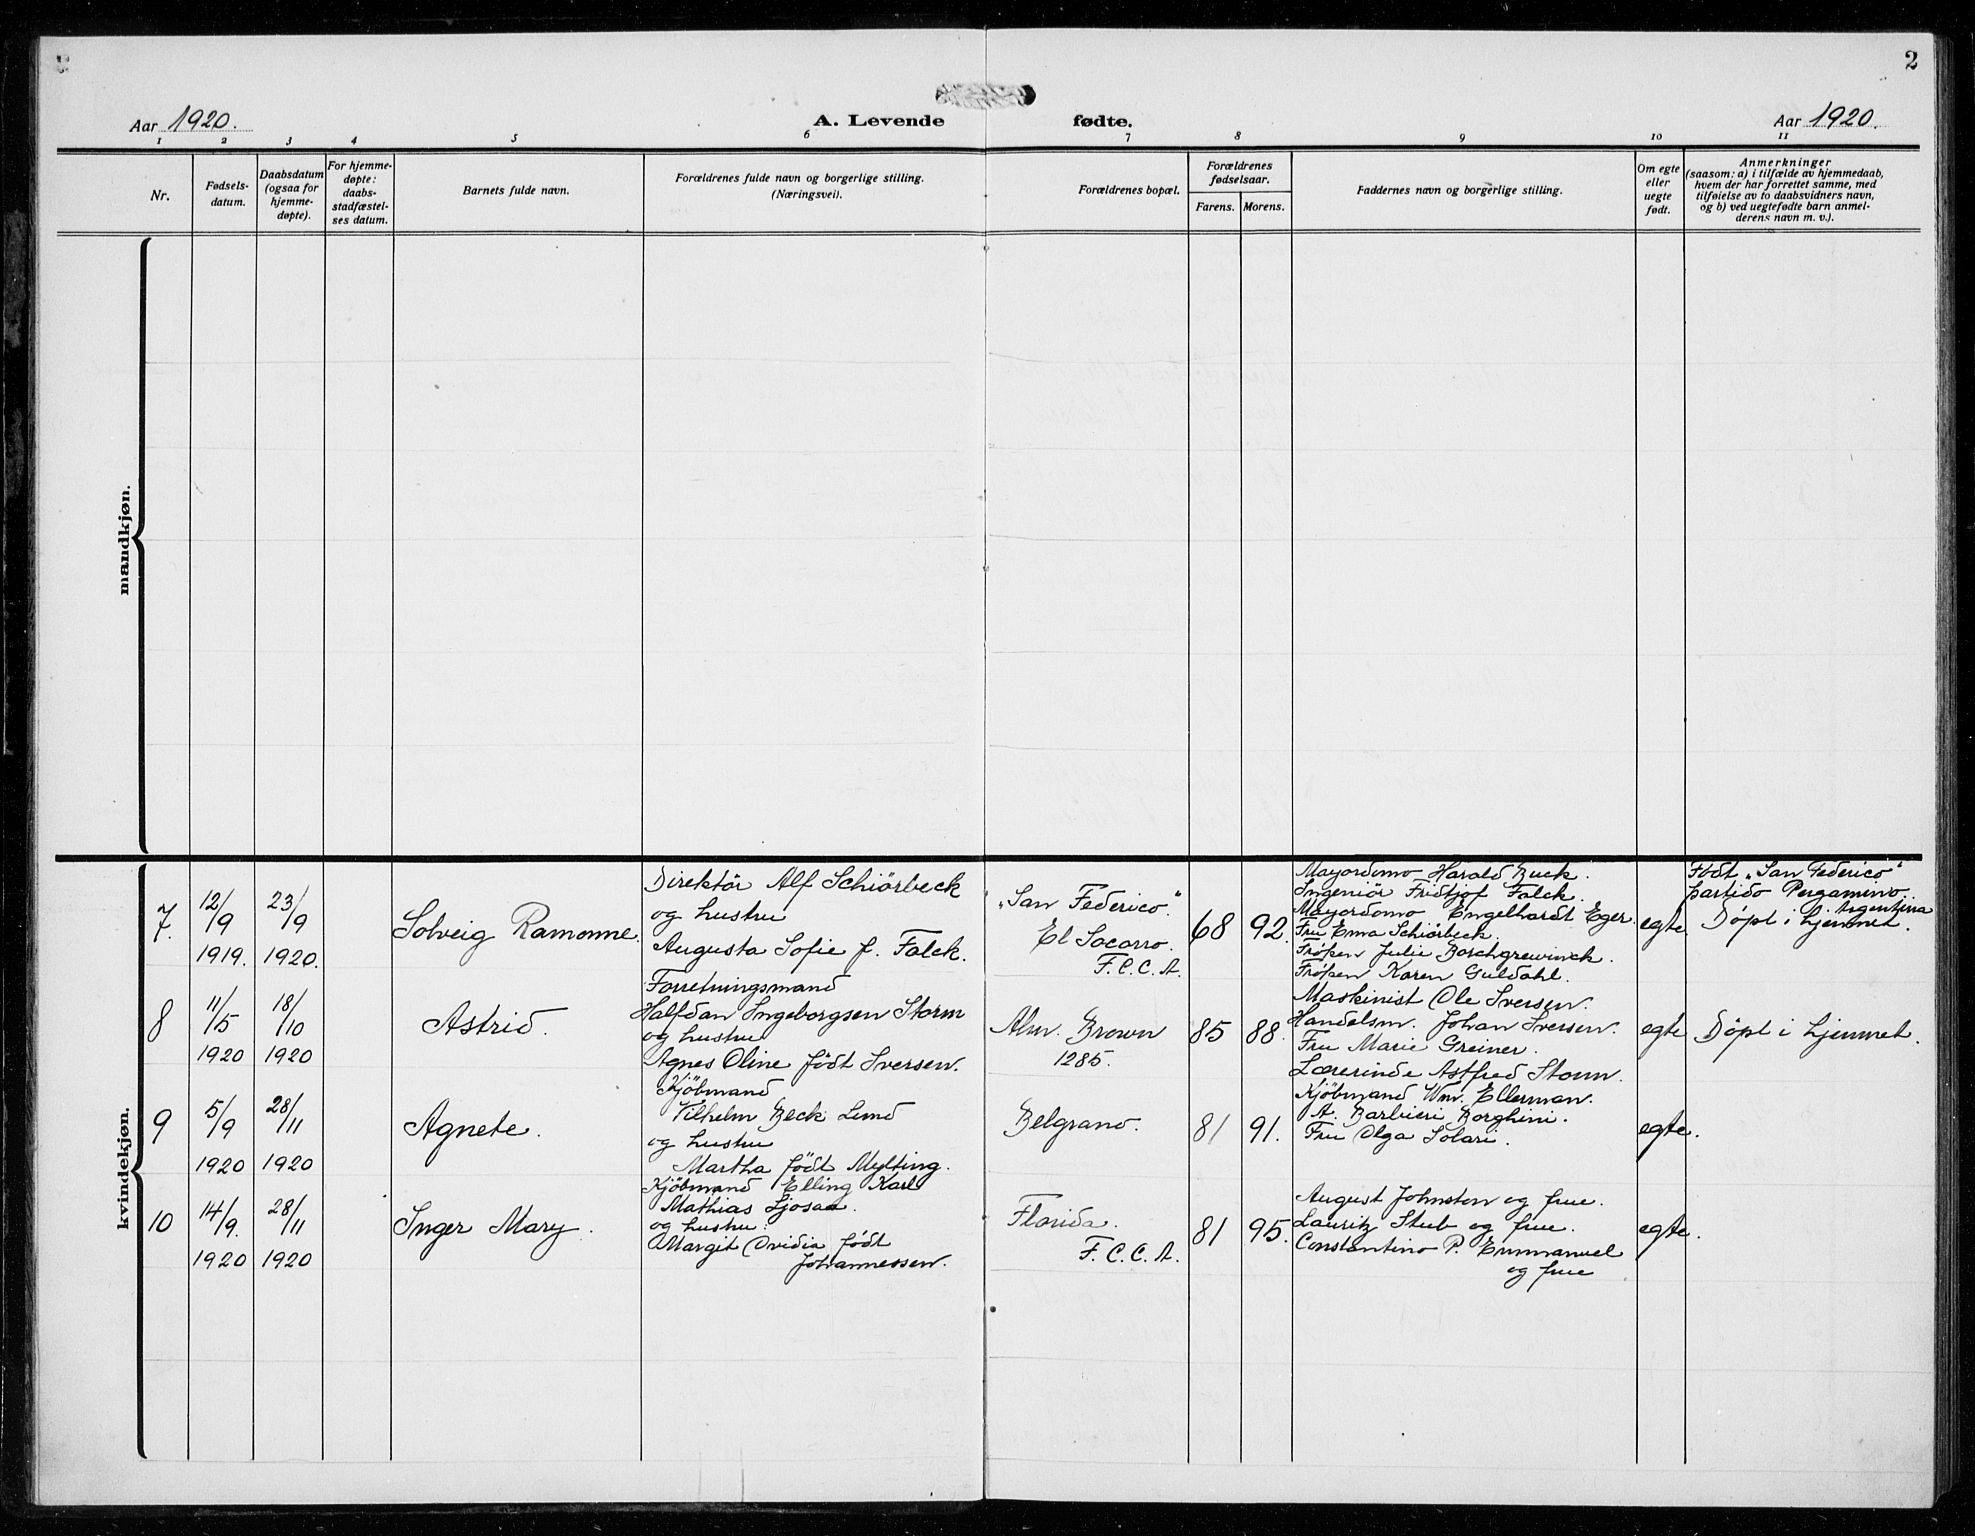 2
Aar 1920.
A. Levende fødte.
Aar 1920.
1 2 3 4 5 6 7 8 9 10 11
Nr.
Fødsels-
datum.
Daabsdatum
(ogsaa for
hjemme-
døpte).
For hjemme-
døpte:
daabs-
stadfæstel-
ses datum.
Barnets fulde navn.
Forældrenes fulde navn og borgerlige stilling.
(Næringsvei).
Forældrenes bopæl.
Forældrenes
fødselsaar.
Farens. Morens.
Faddernes navn og borgerlige stilling.
Om egte
eller
uegte
født.
Anmerkninger
(saasom: a) i tilfælde av hjemmedaab,
hvem der har forrettet samme, med
tilføielse av to daabsvidners navn,
og b) ved uegtefødte barn anmel-
derens navn m. v.).
mandkjøn.
kvindekjøn.
7.
12/9
1919.
23/9
1920.
Solveig Ramonne.
Direktör Alf Schiörbeck
og hustru
Augusta Sofie f. Falck.
"San Federico".
El Socorro.
F.C.C.A.
68 92.
Mayordomo Harald Buck.
Ingeniör Fridtjof Falck.
Mayordomo Engelhardt Eger.
Fru Ema Schiörbeck.
Fröken Julie Borchgrewinck.
Fröken Karen Guldahl.
egte
Födt "San Federico"
partido Pergamino
Argentina
Döpt i hjemmet.
8
11/5
1920
18/10
1920
Astrid.
Forretningsmand
Halfdan Ingeborgsen Storm
og hustru
Agnes Oline födt Iversen.
Alm. Brown
1285.
85 88.
Maskinist Ole Iversen.
Handelsm. Johan Iversen.
Fru Marie Greiner.
Lærerinde Astfred Storm.
egte
Döpt i hjemmet.
9
5/9
1920
28/11
1920
Agnete.
Kjöbmand
Vilhelm Beck Lund
og hustru
Martha födt Mylting.
Belgrano.
81 91.
Kjöbmand Wm. Ellerman.
A. Barbieri Borghini.
Fru Olga Solari.
egte.
10
14/9.
1920
28/11
1920
Inger Mary.
Kjöbmand Elling Karl
Mathias Ljosaa.
og hustru.
Margit Ovidia födt
Johannessen.
Florida.
F.C.C.A.
81 95.
August Johnston og frue.
Lauritz Stub og frue.
Constantino P. Emmanuel
og frue
egte.